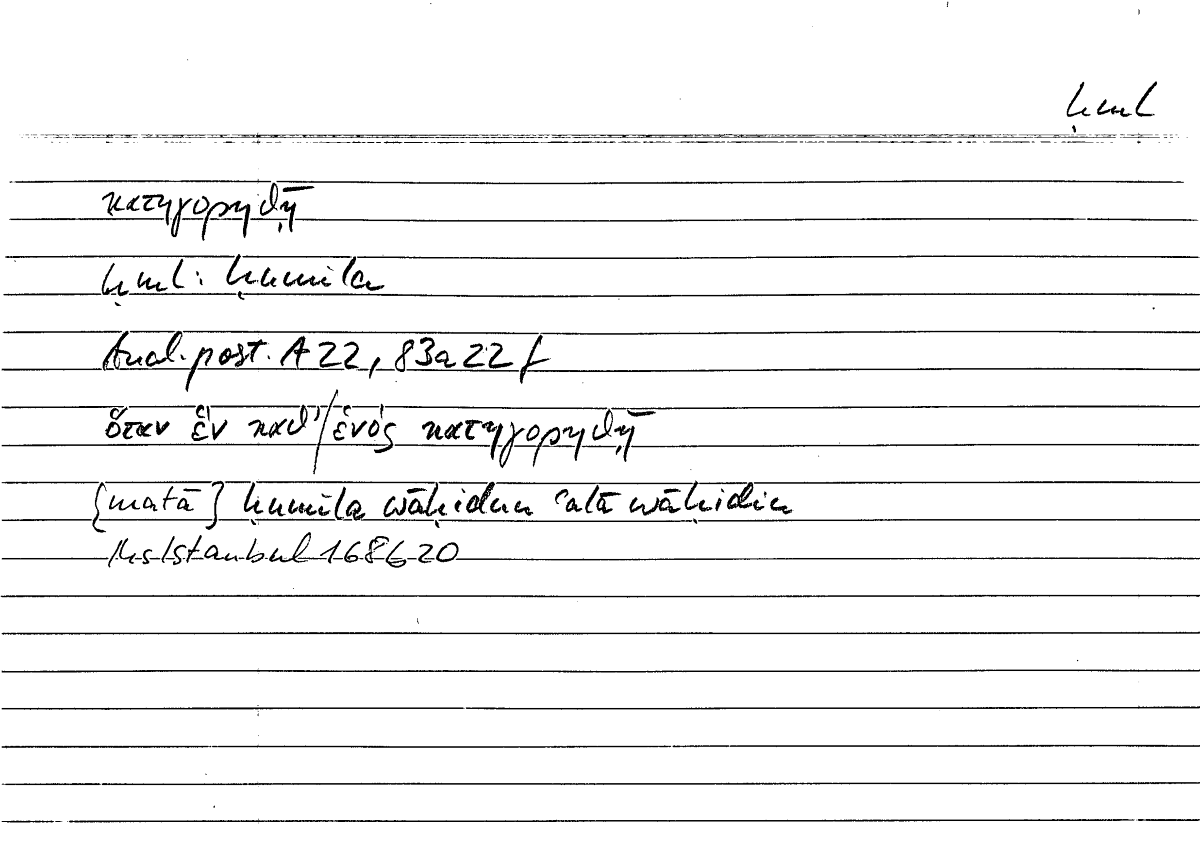 ḥml
κατηγορηθῇ
ḥml: ḥumila
Anal. post. A 22, 83a 22 f
ὅταν ἓν καθ’/ἑνός κατηγορηθῇ
{matā} ḥumila wāḥidun ʿalā wāḥidin
Hs Istanbul 168b 20